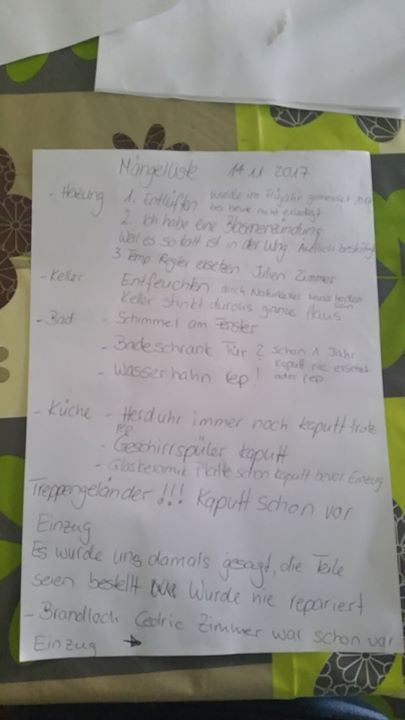 Mängelliste 14.11 2017
- Heizung 1. Entlüften wurde im Frühjahr gemeldet
bis heute nicht erledigt
2. Ich habe eine Blasenentzündung
Weil es so kalt ist in der Whg. Ärztlich bestätigt
3. Temp Regler ersetzen Julien Zimmer
- Keller Entfeuchten auch
Keller stinkt durchs ganze Haus
- Bad - Schimmel am Fenster
- Badeschrank Tür 2 schon 1 Jahr
kaputt nie ersetzt
- Wasserhahn rep! oder rep.
- Küche - Herduhr immer noch kaputt trotz
rep.
- Geschirrspüler kaputt
- Glaskeramik Platte schon kaputt bevor Einzug
Treppengeländer !!! Kaputt schon vor
Einzug
Es wurde uns damals gesagt, die Teile
seien bestellt Wurde nie repariert
- Brandloch Cedric Zimmer war schon vor
Einzug →